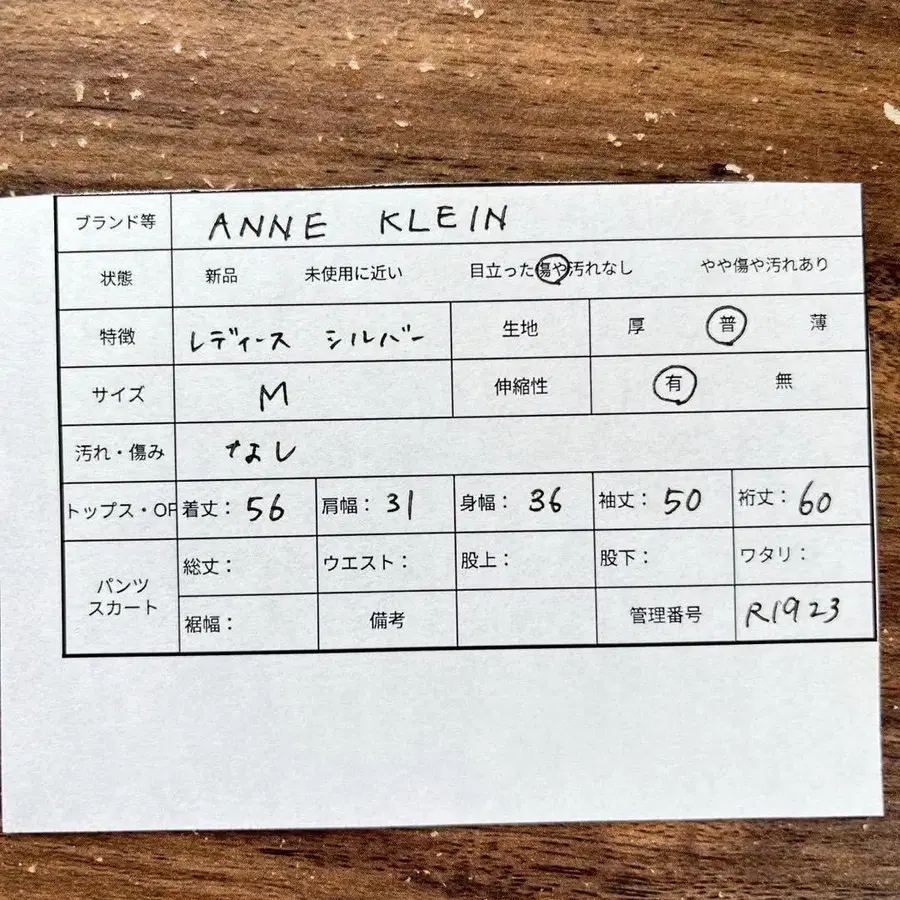 ブランド等 ANNE KLEIN
状態 新品 未使用に近い 目立った傷や汚れなし やや傷や汚れあり
特徴 レディース シルバー 生地 厚 普 薄
サイズ M 伸縮性 有 無
汚れ・傷み なし
トップス・OP 着丈：56 肩幅：31 身幅：36 袖丈：50 裄丈：60
パンツ スカート 総丈： ウエスト： 股上： 股下： ワタリ：
裾幅： 備考 管理番号 R1923